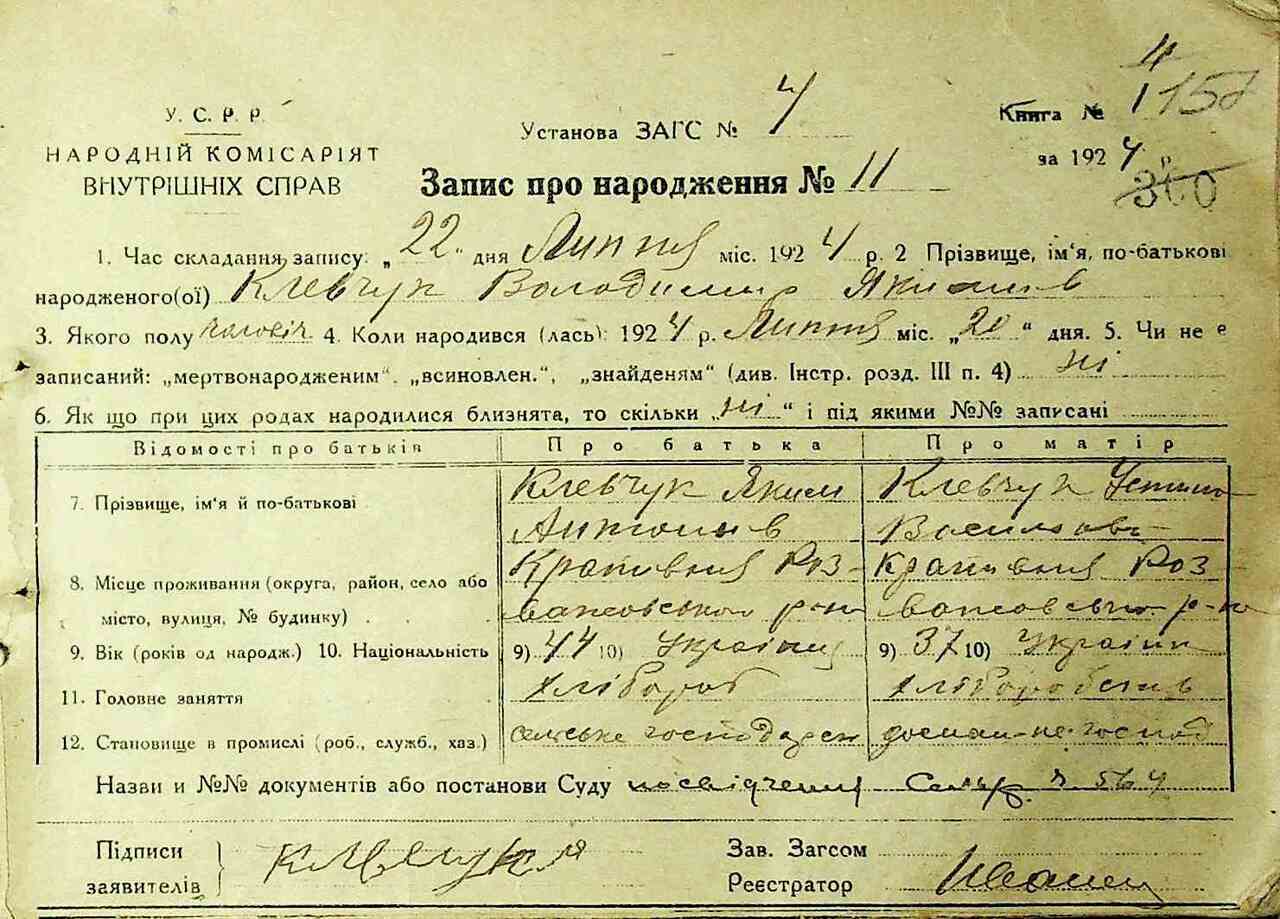 11
У. С. Р. Р.
НАРОДНІЙ КОМІСАРІЯТ
ВНУТРІШНІХ СПРАВ
Установа ЗАГС № 4
Книга № 1
за 1924 р.
Запис про народження № 11
1. Час складання запису: „22" дня Липня міс. 1924 р. 2 Прізвище, ім'я, по-батькові
народженого(ої) Клевчук Володимир Якимів
3. Якого полу чоловіч 4. Коли народився (лась): 1924 р. Липня міс. „20" дня. 5. Чи не є
записаний: „мертвонародженим". „всиновлен.", „знайденям" (див. Інстр. розд. III п. 4) ні
6. Як що при цих родах народилися близнята, то скільки „ні" і під якими №№ записані
Відомості про батьків Про батька Про матір
7. Прізвище, ім'я й по-батькові Клевчук Яким Клевчук Устина
Антонів Василівна
8. Місце проживання (округа, район, село або Крапивня Роз- Крапивня Роз-
місто, вулиця, № будинку) важівського р-ну важівського р-ну
9. Вік (років од народж.) 10. Національність 9) 44 10) Українець 9) 37 10) Українка
11. Головне заняття хлібороб хліборобство
12. Становище в промислі (роб., служб., хаз.) сельське господар домаш-не господ
Назви и №№ документів або постанови Суду посвідчення Сельр. № 564
Підписи
заявителів Клевчук
Зав. Загсом
Реєстратор